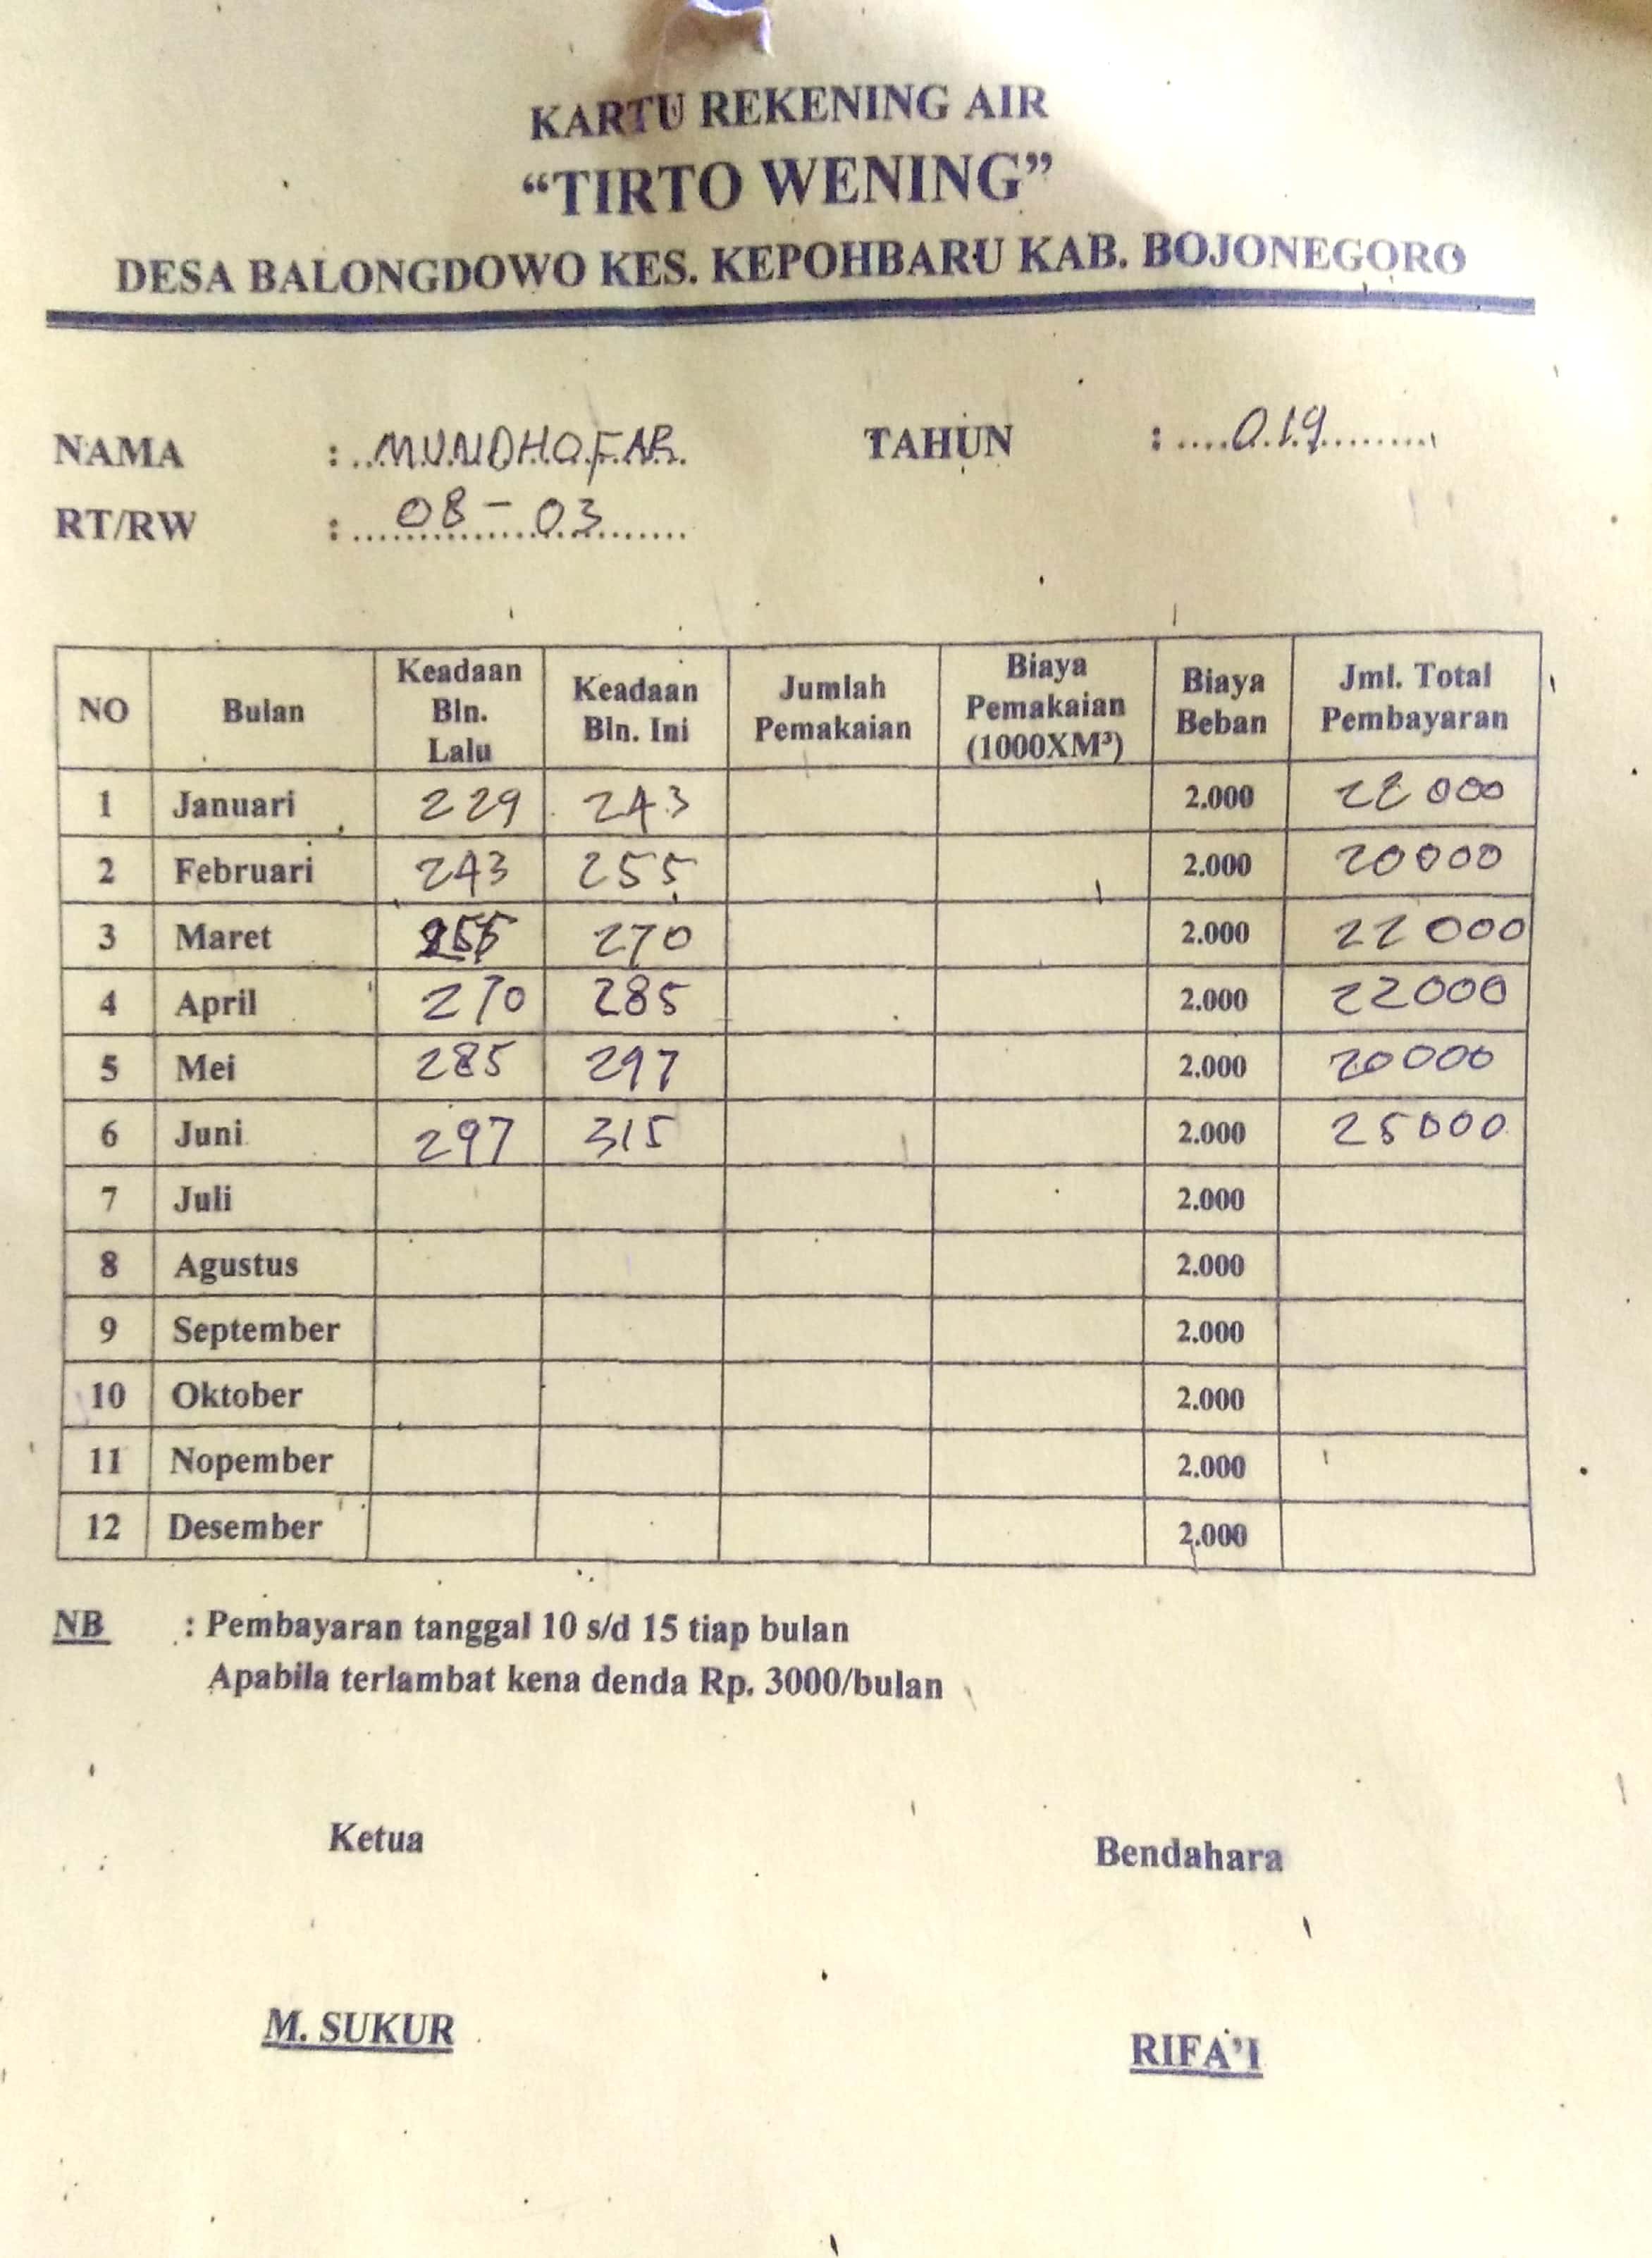 KARTU REKENING AIR
“TIRTO WENING”
DESA BALONGDOWO KES. KEPOHBARU KAB. BOJONEGORO
NAMA : MUNDHOFAR. TAHUN : 019
RT/RW : 08 - 03
NO Bulan Keadaan Bln. Lalu Keadaan Bln. Ini Jumlah Pemakaian Biaya Pemakaian (1000XM³) Biaya Beban Jml. Total Pembayaran
1 Januari 229 243 2.000 22 000
2 Februari 243 255 2.000 20000
3 Maret 255 270 2.000 22 000
4 April 270 285 2.000 22000
5 Mei 285 297 2.000 20000
6 Juni 297 315 2.000 25000
7 Juli 2.000
8 Agustus 2.000
9 September 2.000
10 Oktober 2.000
11 Nopember 2.000
12 Desember 2.000
NB : Pembayaran tanggal 10 s/d 15 tiap bulan
Apabila terlambat kena denda Rp. 3000/bulan
Ketua Bendahara
M. SUKUR RIFA’I